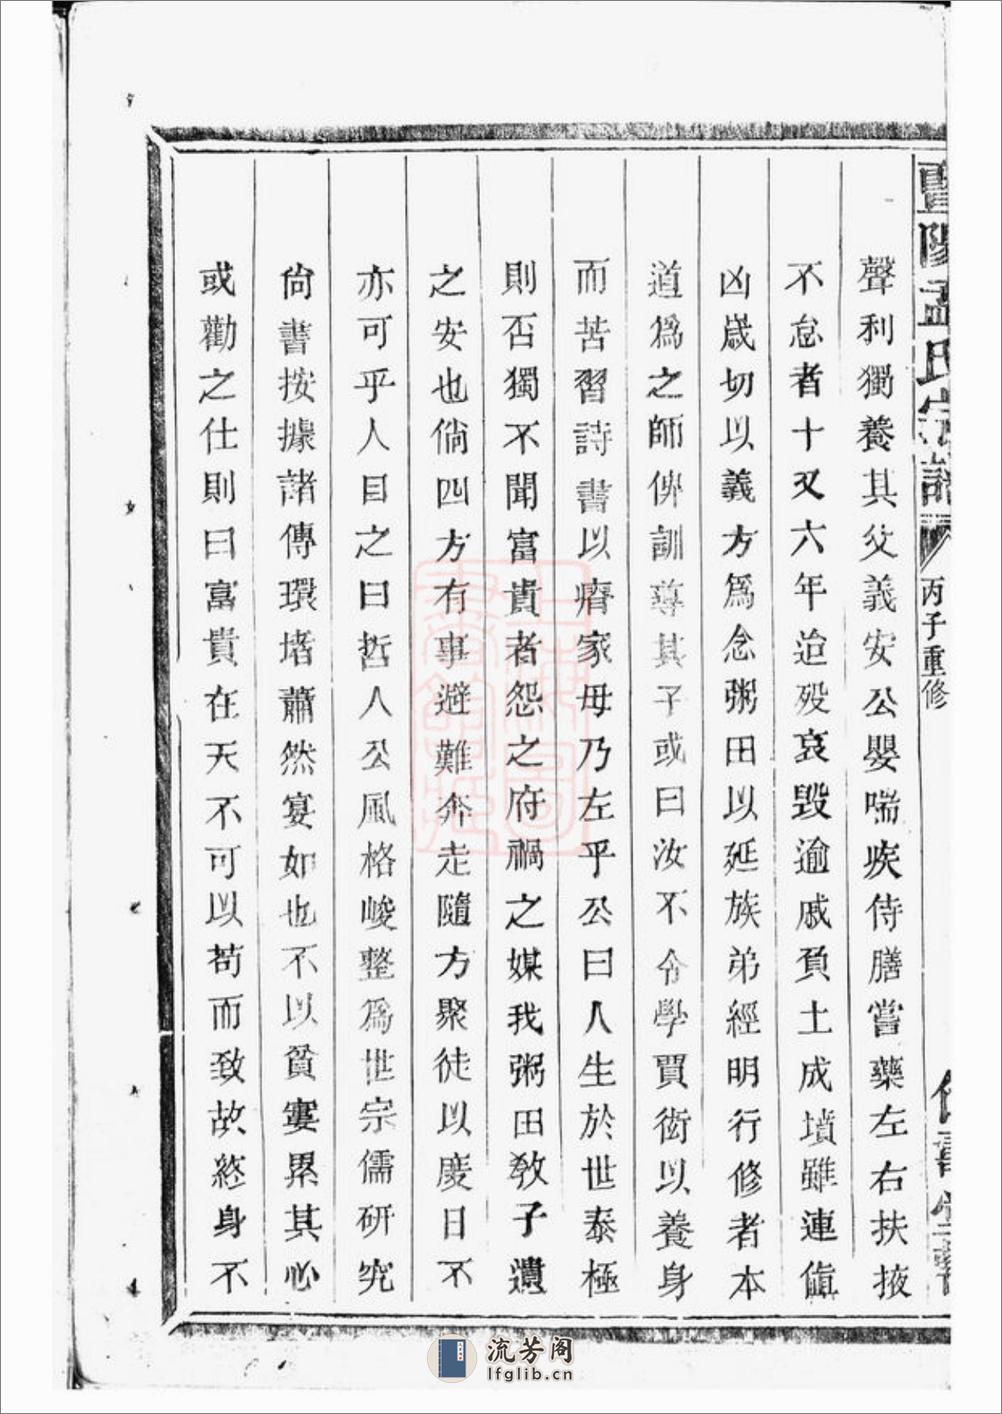 暨陽孟氏宗譜
丙子重修
聲利獨養其父義安公嬰喘疾侍膳嘗藥左右扶掖
不怠者十又六年迨歿哀毀逾戚負土成墳雖連值
凶歲切以義方為念粥田以延族弟經明行修者本
道爲之師俾訓導其子或曰汝不令學賈衒以養身
而苦習詩書以瘠家毋乃左乎公曰人生於世泰極
則否獨不聞富貴者怨之府禍之媒我粥田教子遺
之安也倘四方有事避難奔走隨方聚徒以度日不
亦可乎人目之曰哲人公風格峻整爲世宗儒研究
尙書按據諸傳環堵蕭然宴如也不以貧寠累其心
或勸之仕則曰富貴在天不可以苟而致故終身不
流芳阁
lfglib.cn